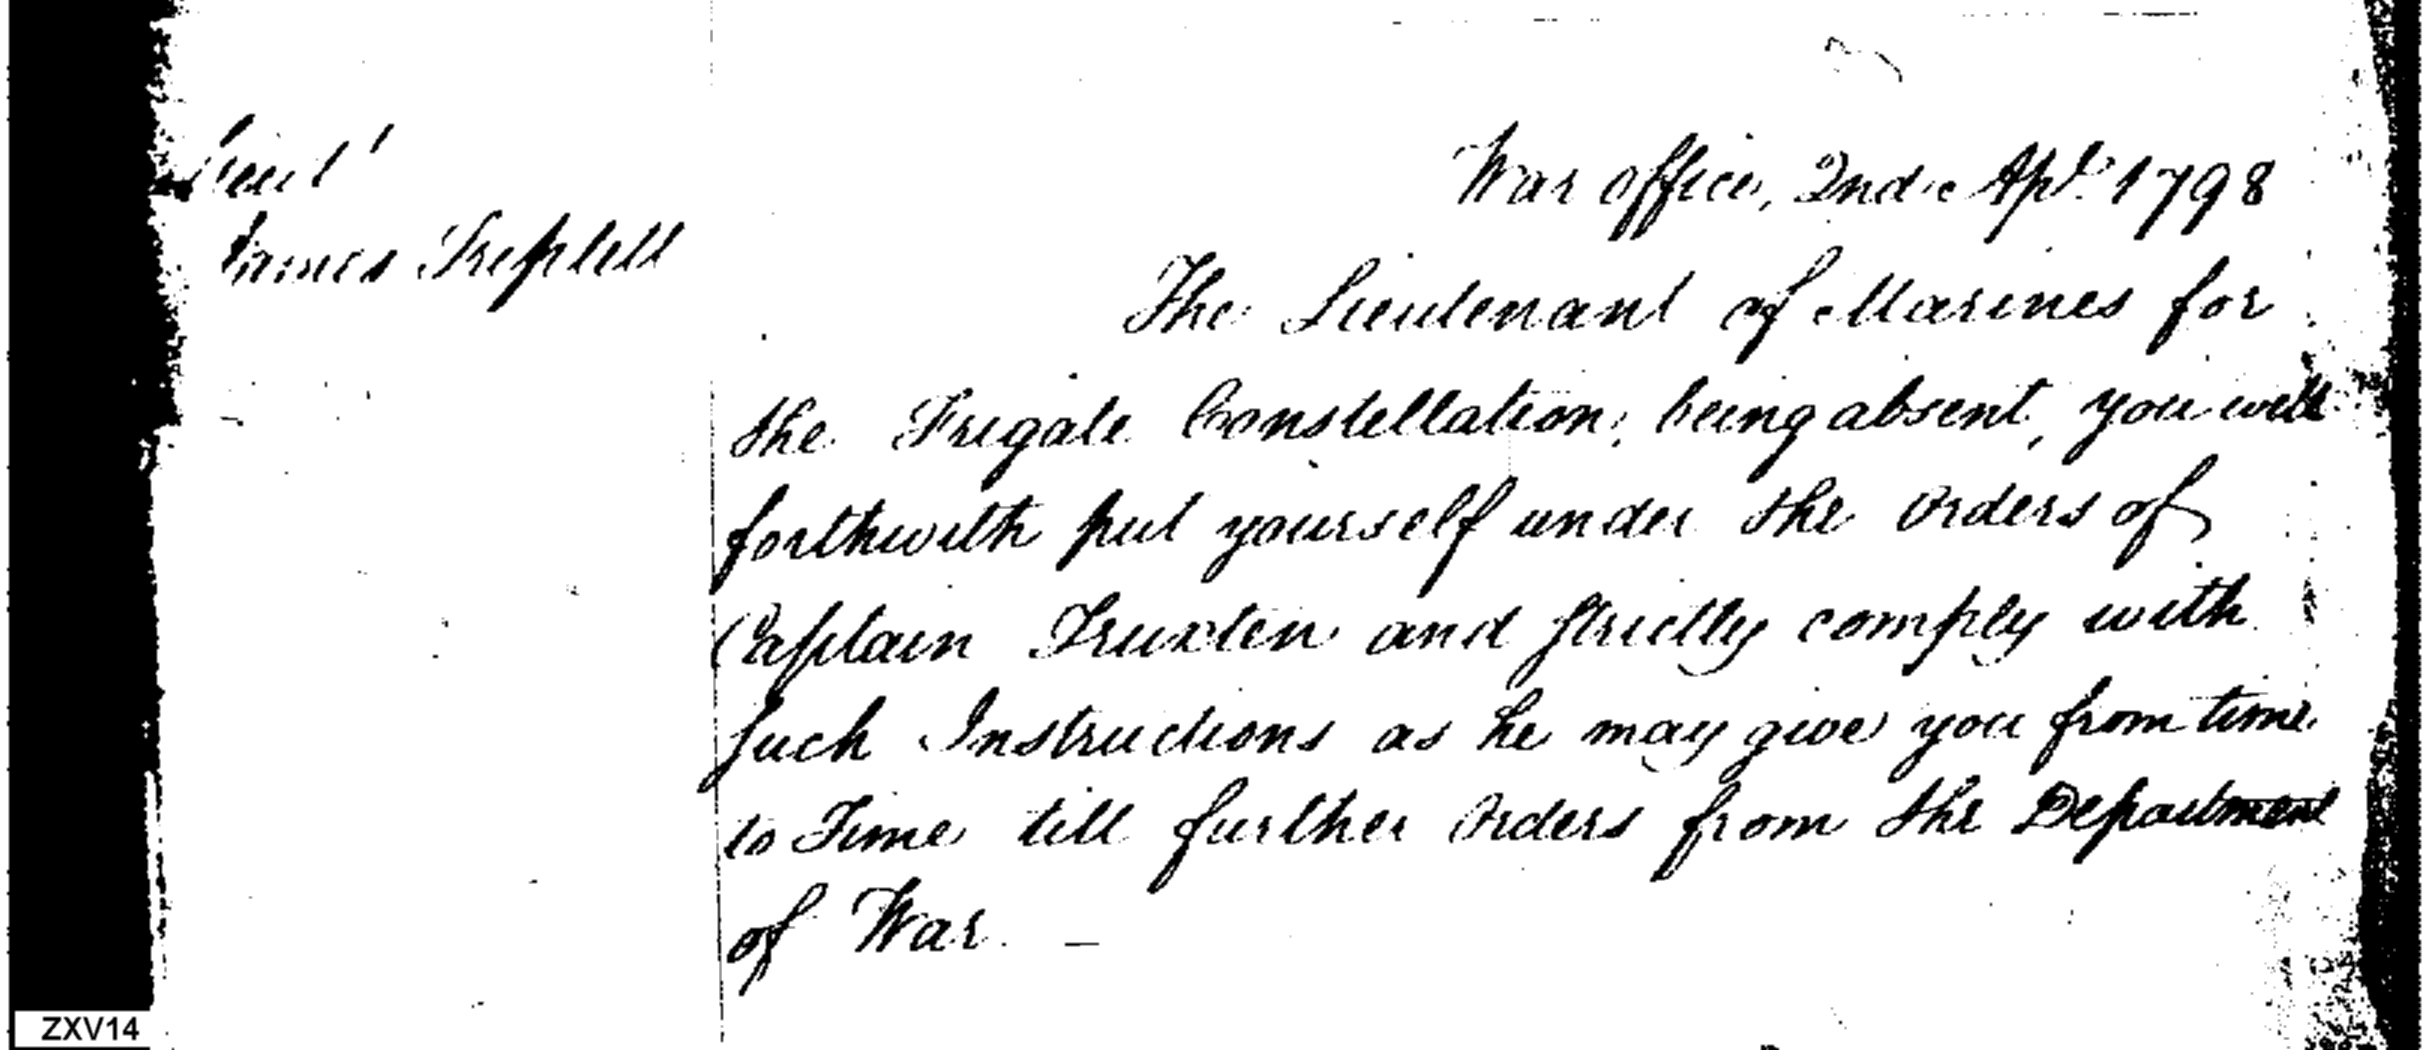 Lieut
James Triplett
War office, 2nd Apl. 1798
The Lieutenant of Marines for
the Frigate Constellation, being absent, you will
forthwith put yourself under the Orders of
Captain Truxten and strictly comply with
such Instructions as he may give you from time
to Time till further Orders from the Department
of War. —
ZXV14